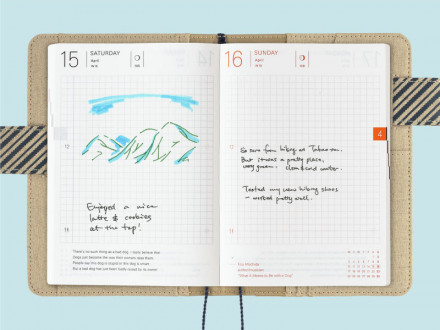 15
SATURDAY
April
Enjoyed a nice
latte & cookies
at the top!
12
There's no such thing as a bad dog - I really believe that.
Dogs just become the way their owners raise them.
People say this dog is stupid or this dog is smart
But a bad dog has just been badly raised by its owner.
16
SUNDAY
April
4
So sore from hiking at
But it was a pretty place,
very green. clean & cold water.
Tested my new hiking shoes
- worked pretty well.
12